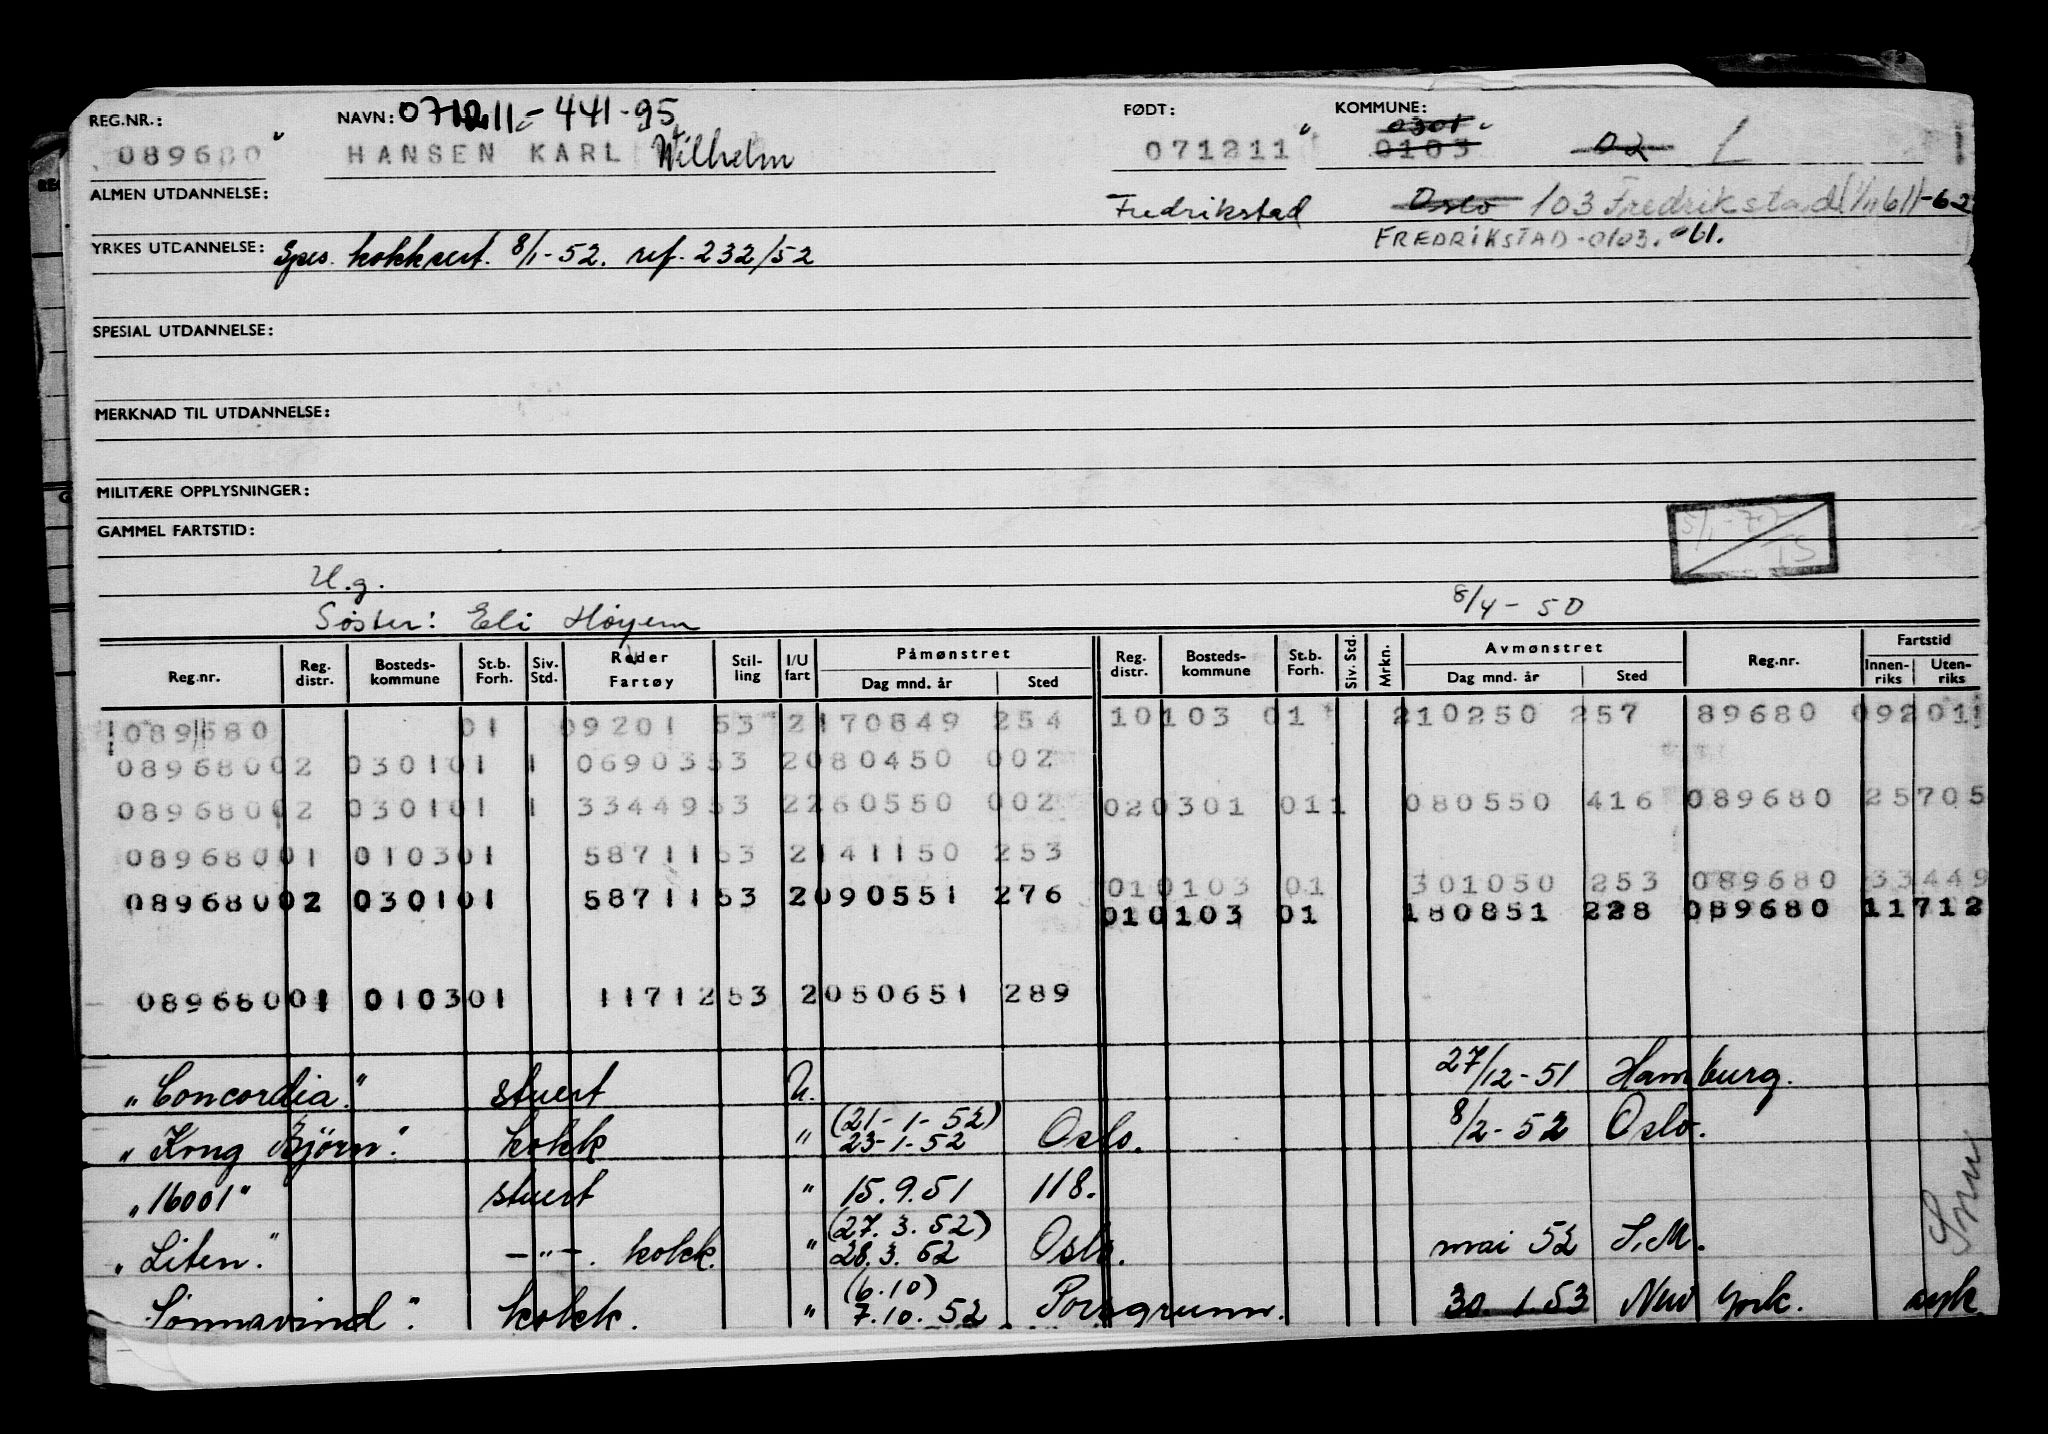 REG.NR.: NAVN: 071211-441-95 FØDT: KOMMUNE: 0301
089680 HANSEN KARL Wilhelm 071211 0103 02
ALMEN UTDANNELSE: Fredrikstad Oslo 103 Fredrikstad 1/11 61 -62
YRKES UTDANNELSE: Spes. kokksert. 8/1-52. ref. 232/52 FREDRIKSTAD-0103. 61.
SPESIAL UTDANNELSE:
MERKNAD TIL UTDANNELSE:
MILITÆRE OPPLYSNINGER:
GAMMEL FARTSTID:
U.g.
Søster: Eli Höyem 8/4-50
Reg.nr. Reg. distr. Bosteds-kommune St.b. Forh. Siv. Std. Reder Fartøy Stil-ling I/U fart Påmønstret Dag mnd. år Sted Reg. distr. Bosteds-kommune St.b. Forh. Siv. Std. Mrkn. Avmønstret Dag mnd. år Sted Reg.nr. Fartstid Innen-riks Uten-riks
089680 01 09201 53 2170849 254 10103 01 210250 257 89680 09201
08968002 030101 1 0690353 2080450 002
08968002 030101 1 3344953 2260550 002 020301 011 080550 416 089680 25705
08968001 010301 5871153 2141150 253
010103 01 301050 253 089680 33449
08968002 030101 5871153 2090551 276
010103 01 180851 228 089680 11712
08968001 010301 1171253 2050651 289
"Concordia." stuert U. 27/12-51 Hamburg.
"Kong Björn". kokk " (21-1-52) 23-1-52 Oslo. 8/2-52 Oslo.
"16001" stuert " 15.9.51 118.
"Liten." -"-. kokk. " (27.3.52) 28.3.52 Oslo. mai 52 S.M.
Sönnavind". kokk. " (6.10) 7.10.52 Porsgrunn. 30.1.53 New York. syk